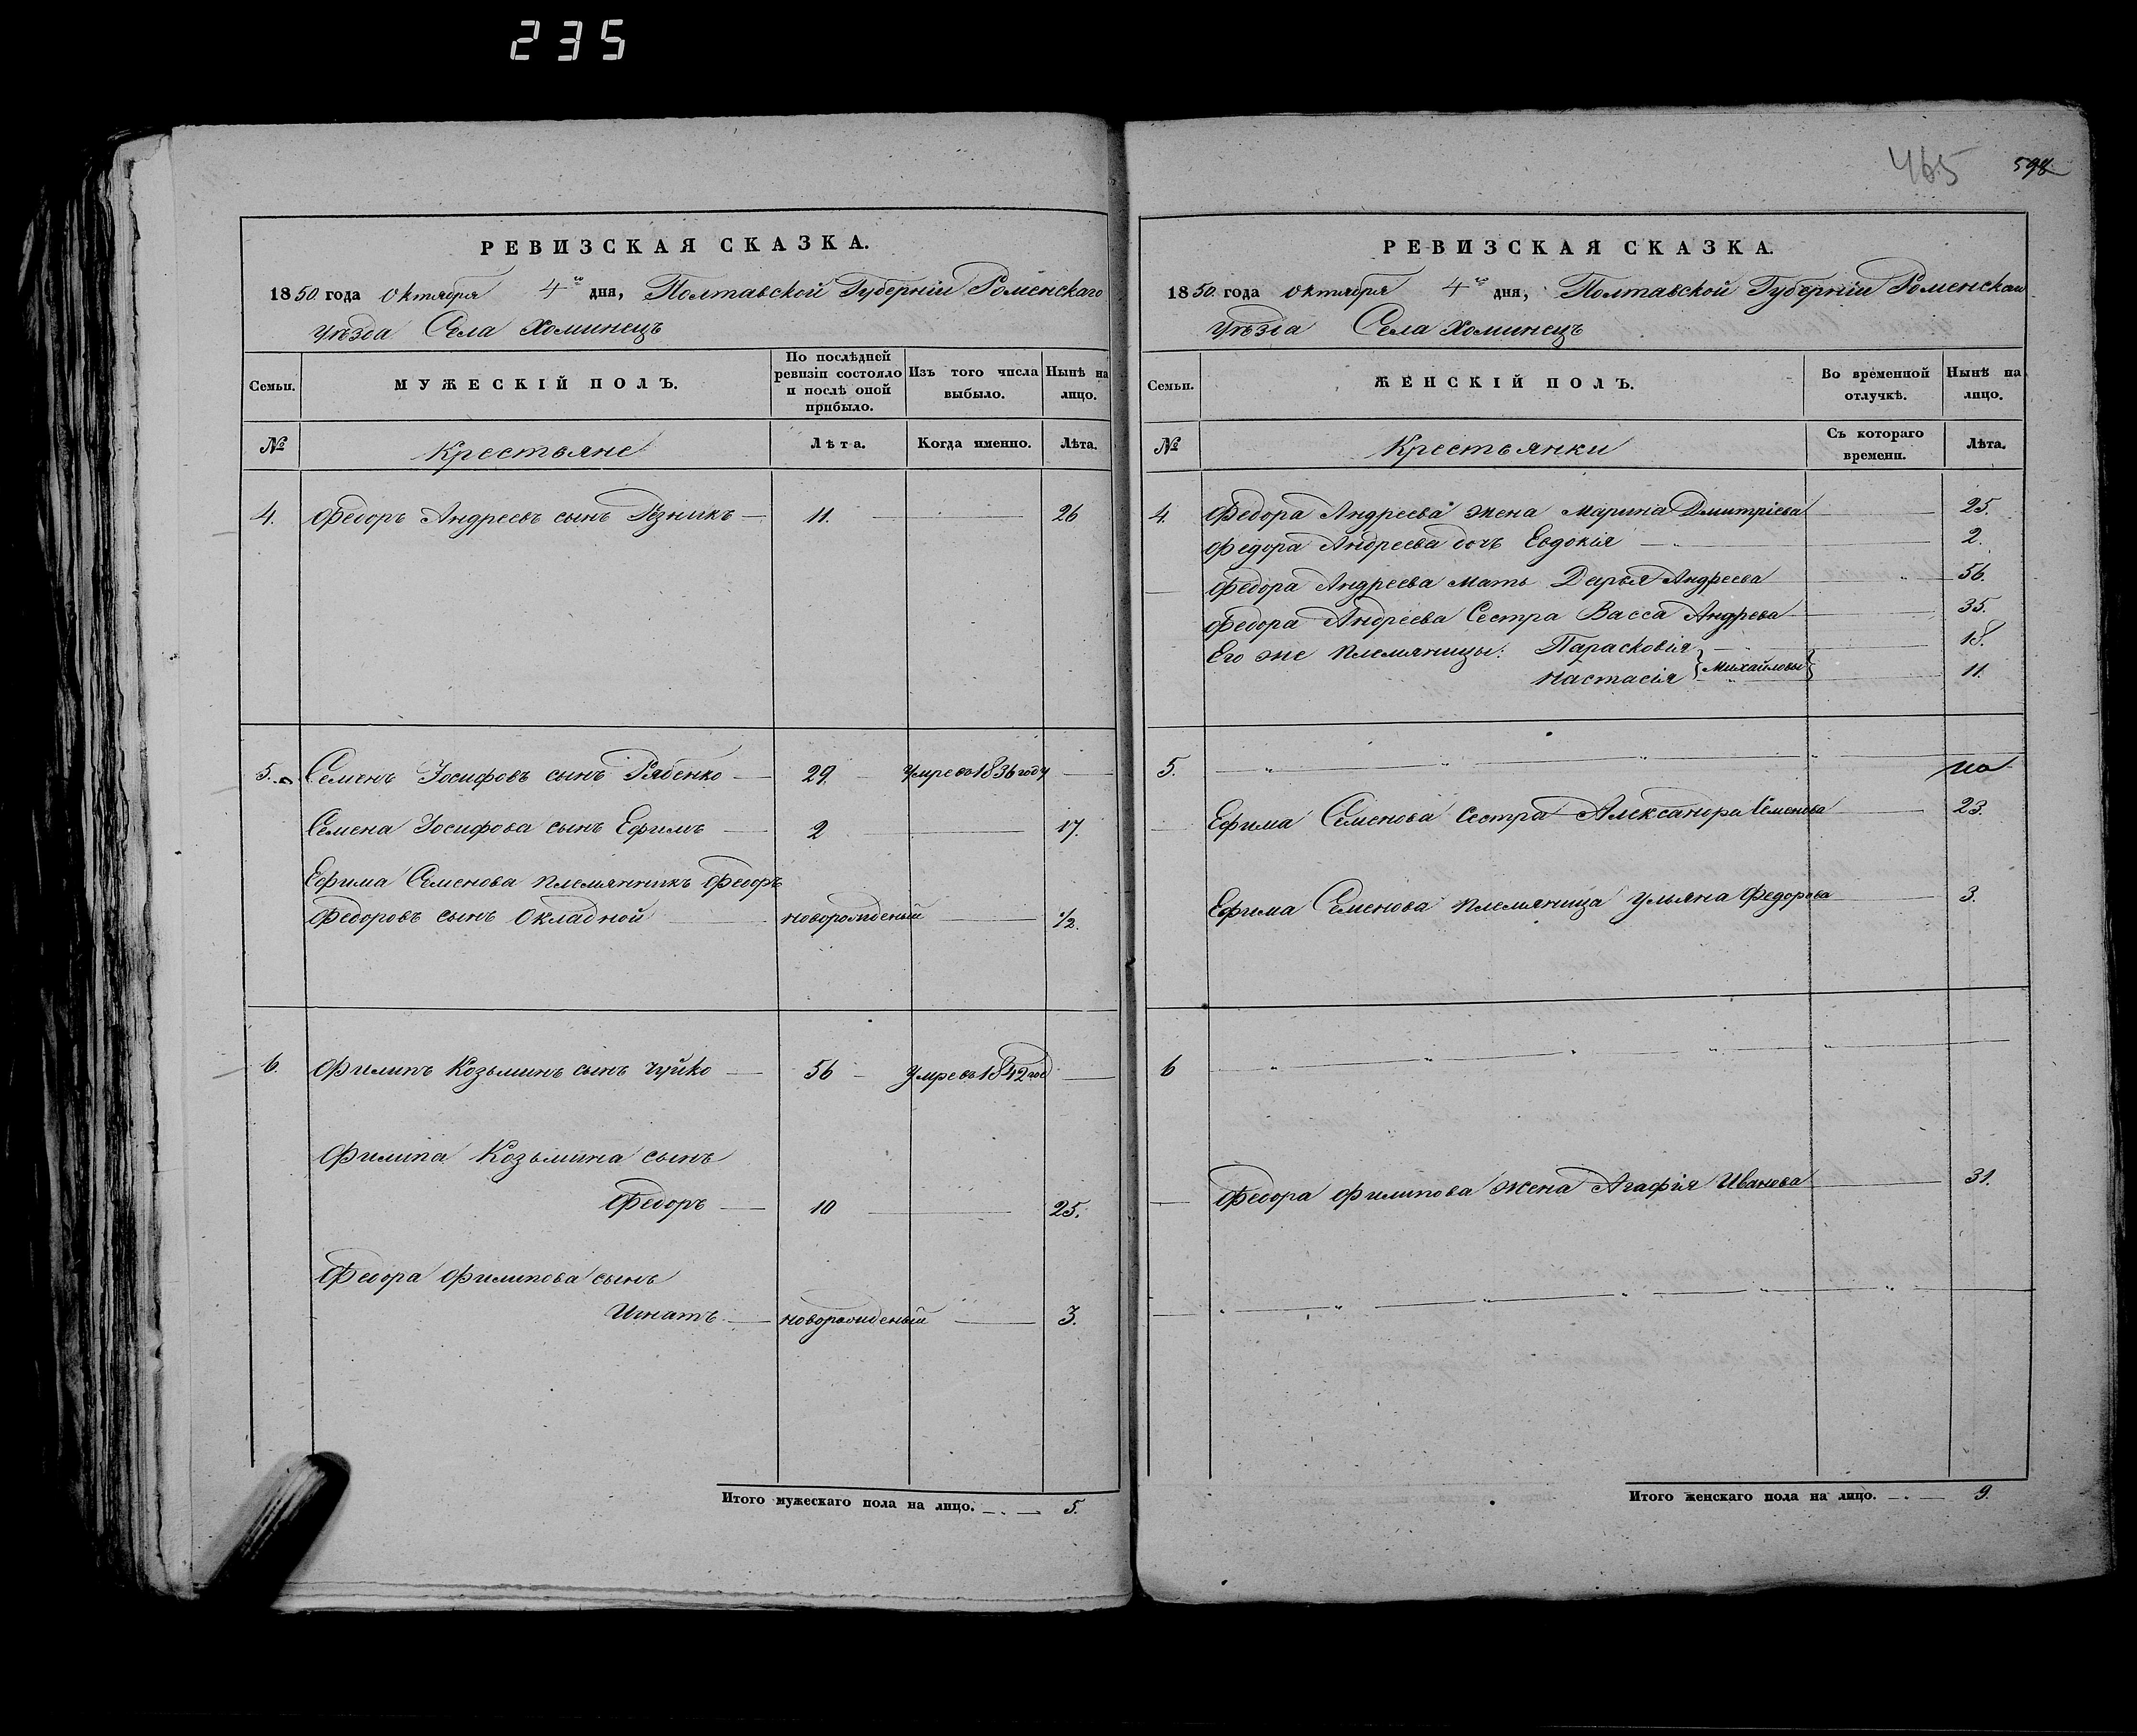 235
465 598
РЕВИЗСКАЯ СКАЗКА.
1850 года Октября 4го дня, Полтавской Губерніи Роменскаго
Уѣзда Села Хоминецъ
Семьи.
МУЖЕСКІЙ ПОЛЪ.
По послѣдней ревизіи состояло и послѣ оной прибыло.
Изъ того числа выбыло.
Нынѣ на лицо.
№ Крестьяне Лѣта. Когда именно. Лѣта.
4. Федоръ Андреевъ сынъ Рѣзникъ — 11. — 26
5. Семенъ Іосифовъ сынъ Рябенко — 29 Умре въ 1836 году —
Семена Іосифова сынъ Ефимъ — 2 — 17.
Ефима Семенова племянникъ Федоръ
Федоровъ сынъ Окладной — новорожденый — 1/2.
6. Филипъ Козьминъ сынъ Чуйко — 56 — Умре въ 1842 год —
Филипа Козьмина сынъ
Федоръ — 10 — 25.
Федора Филипова сынъ
Игнатъ — новорожденый — 3.
Итого мужескаго пола на лицо. — 5.
РЕВИЗСКАЯ СКАЗКА.
1850 года Октября 4го дня, Полтавской Губерніи Роменскаго
Уѣзда Села Хоминецъ
Семьи.
ЖЕНСКІЙ ПОЛЪ.
Во временной отлучкѣ.
Нынѣ на лицо.
№ Крестьянки Съ котораго времени. Лѣта.
4. Федора Андреева жена Марина Дмитріева — 25.
Федора Андреева дочь Евдокія — 2.
Федора Андреева мать Дарья Андреева — 56.
Федора Андреева Сестра Васса Андрева — 35.
Его же племяницы: Парасковія — 18.
Настасія } Михайловы } — 11.
5.
Ефима Семенова сестра Александра Семенова — 23.
Ефима Семенова племяница Ульяна Федорова — 3.
6
Федора Филипова жена Агафія Иванова — 31.
Итого женскаго пола на лицо. — 9.